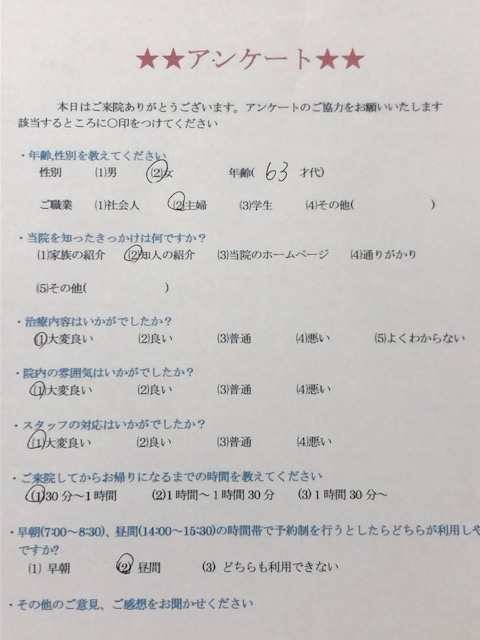 ★★アンケート★★
本日はご来院ありがとうございます。アンケートのご協力をお願いいたします
該当するところに〇印をつけてください
・年齢,性別を教えてください
性別 (1)男 (2)女 年齢( 63 才代)
ご職業 (1)社会人 (2)主婦 (3)学生 (4)その他( )
・当院を知ったきっかけは何ですか？
(1)家族の紹介 (2)知人の紹介 (3)当院のホームページ (4)通りがかり
(5)その他( )
・治療内容はいかがでしたか？
(1)大変良い (2)良い (3)普通 (4)悪い (5)よくわからない
・院内の雰囲気はいかがでしたか？
(1)大変良い (2)良い (3)普通 (4)悪い
・スタッフの対応はいかがでしたか？
(1)大変良い (2)良い (3)普通 (4)悪い
・ご来院してからお帰りになるまでの時間を教えてください
(1)30分～1時間 (2)1時間～1時間30分 (3)1時間30分～
・早朝(7:00～8:30)、昼間(14:00～15:30)の時間帯で予約制を行うとしたらどちらが利用しや
ですか?
(1) 早朝 (2) 昼間 (3) どちらも利用できない
・その他のご意見、ご感想をお聞かせください